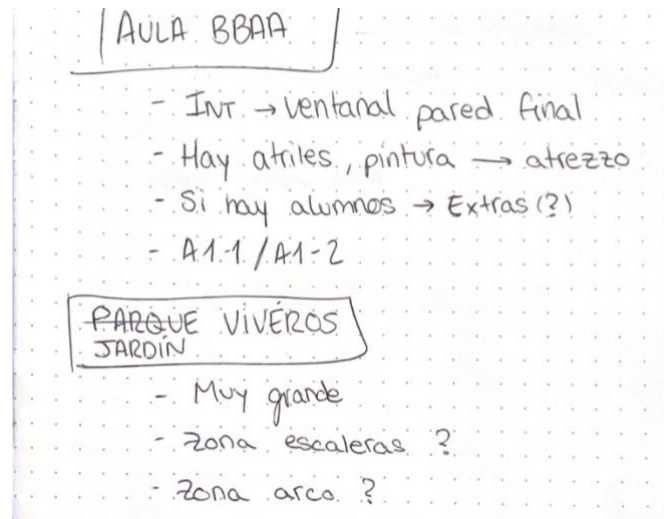 AULA BBAA
- INT → ventanal pared final
- Hay atriles, pintura → atrezzo
- Si hay alumnos → Extras (?)
- A1.1 / A1-2
PARQUE VIVEROS
JARDÍN
- Muy grande
- Zona escaleras ?
- Zona arco ?